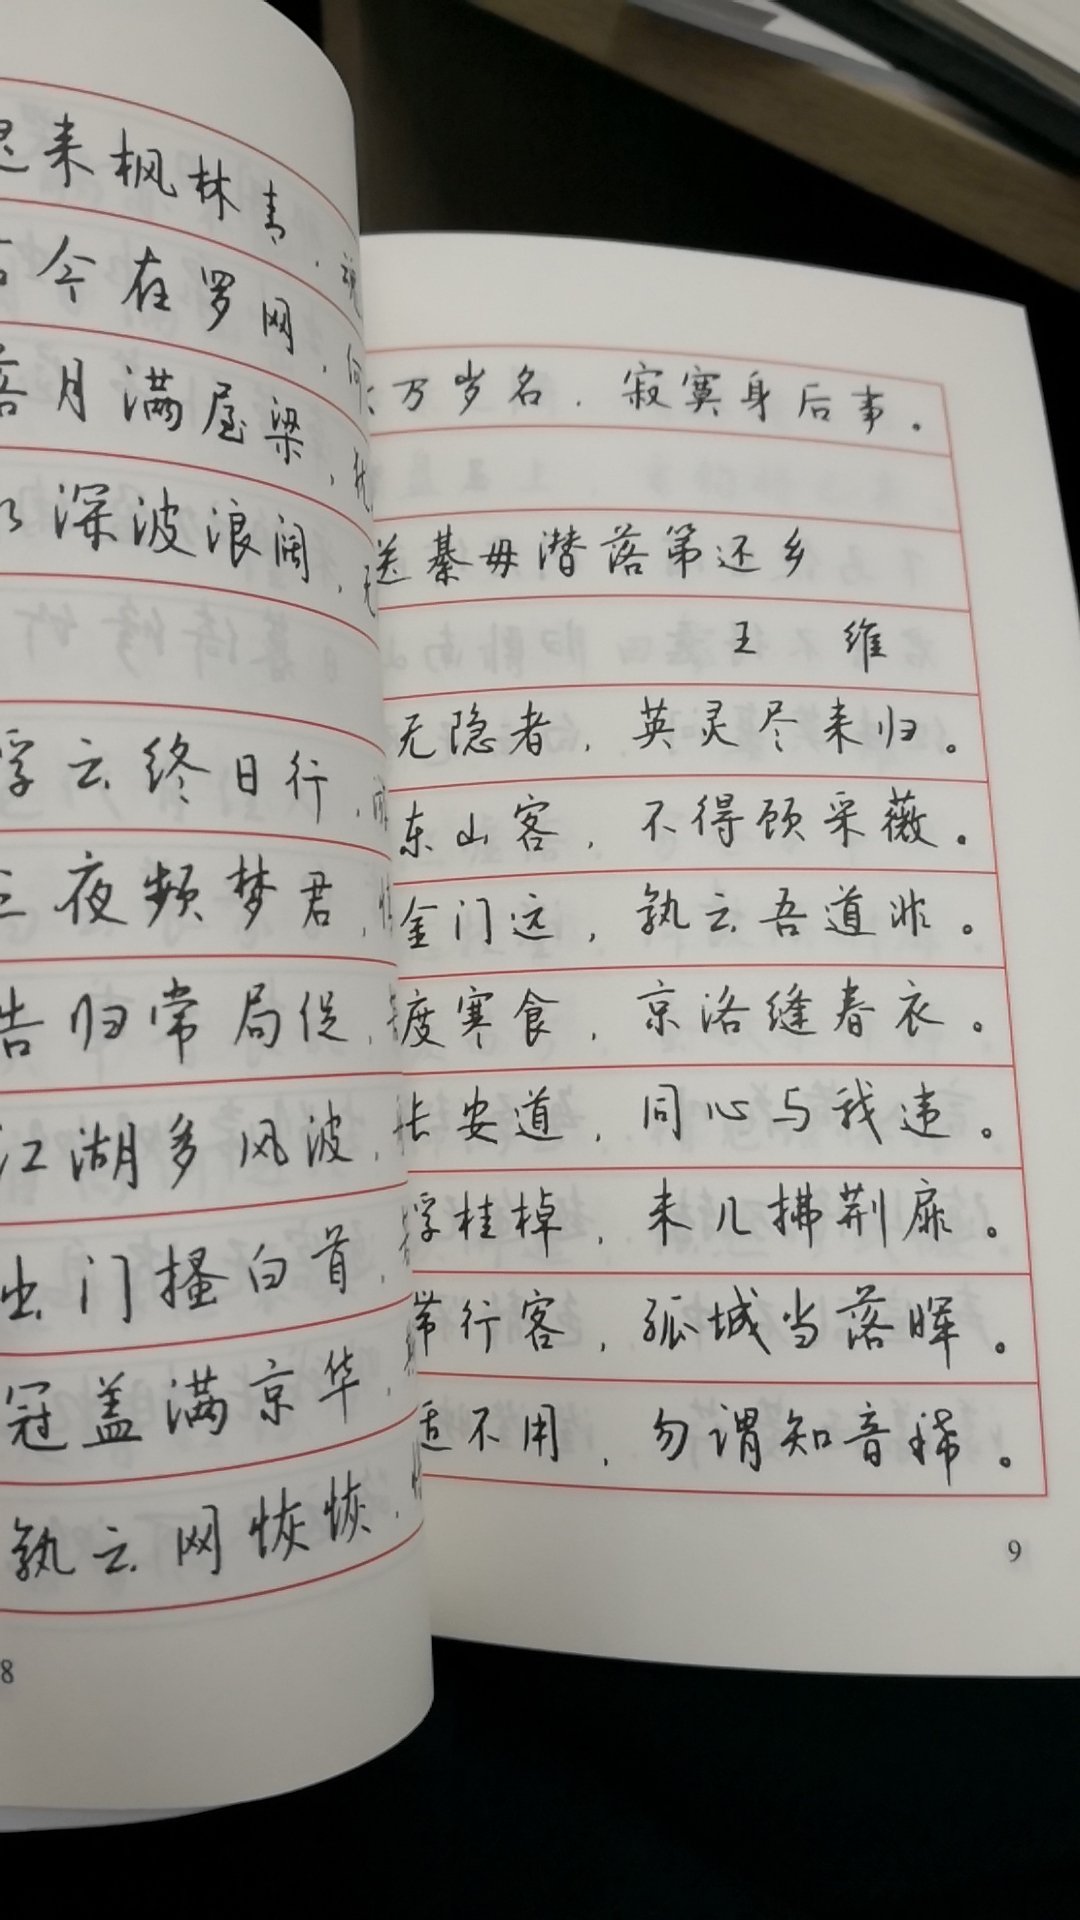 来枫林青，魂
今在罗网，何
月满屋梁，犹
深波浪阔，无
浮云终日行，游
三夜频梦君，情
告归常局促，
江湖多风波，
出门搔白首，
冠盖满京华，
孰云网恢恢，
8
万岁名，寂寞身后事。
送綦毋潜落第还乡
王 维
无隐者，英灵尽来归。
东山客，不得顾采薇。
金门远，孰云吾道非。
度寒食，京洛缝春衣。
长安道，同心与我违。
浮桂棹，未几拂荆扉。
带行客，孤城当落晖。
适不用，勿谓知音稀。
9